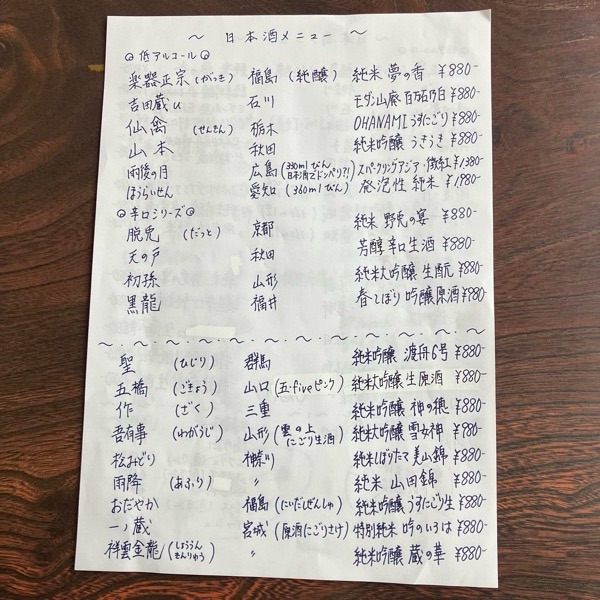 ～ 日本酒メニュー ～
◎低アルコール◎
楽器正宗(がっき) 福島(純醸) 純米 夢の香 ¥880-
吉田蔵u 石川 モダン山廃 百万石乃白 ¥880-
仙禽(せんきん) 栃木 OHANAMI うすにごり ¥880-
山本 秋田 純米吟醸 うきうき ¥880-
雨後の月 広島(330mlびん 日本酒でドンペリ?!) スパークリングアジア・微紅 ¥1,380
ほうらいせん 愛知(360mlびん) 発泡性 純米 ¥1,980
◎辛口シリーズ◎
脱兎(だっと) 京都 純米 野兎の宴 ¥880-
天の戸 秋田 芳醇辛口生酒 ¥880-
初孫 山形 純米大吟醸 生酛 ¥880-
黒龍 福井 春しぼり 吟醸原酒 ¥980-
～・～・～・～・～・～・～・～・～・～
聖(ひじり) 群馬 純米吟醸 渡舟6号 ¥880-
五橋(ごきょう) 山口(五・fiveピンク) 純米大吟醸生原酒 ¥880-
作(ざく) 三重 純米吟醸 神の穂 ¥880-
吾有事(わがうじ) 山形(雲の上 にごり生酒) 純米大吟醸 雪女神 ¥980-
松みどり 神奈川 純米しぼりたて美山錦 ¥880-
雨降(あふり) 〃 純米 山田錦 ¥880-
おだやか 福島(にいだしぜんしゅ) 純米吟醸うすにごり生 ¥880-
一ノ蔵 宮城(原酒にごりさけ) 特別純米 吟のいろは ¥880-
祥雲金龍(しょううんきんりゅう) 〃 純米吟醸 蔵の華 ¥880-